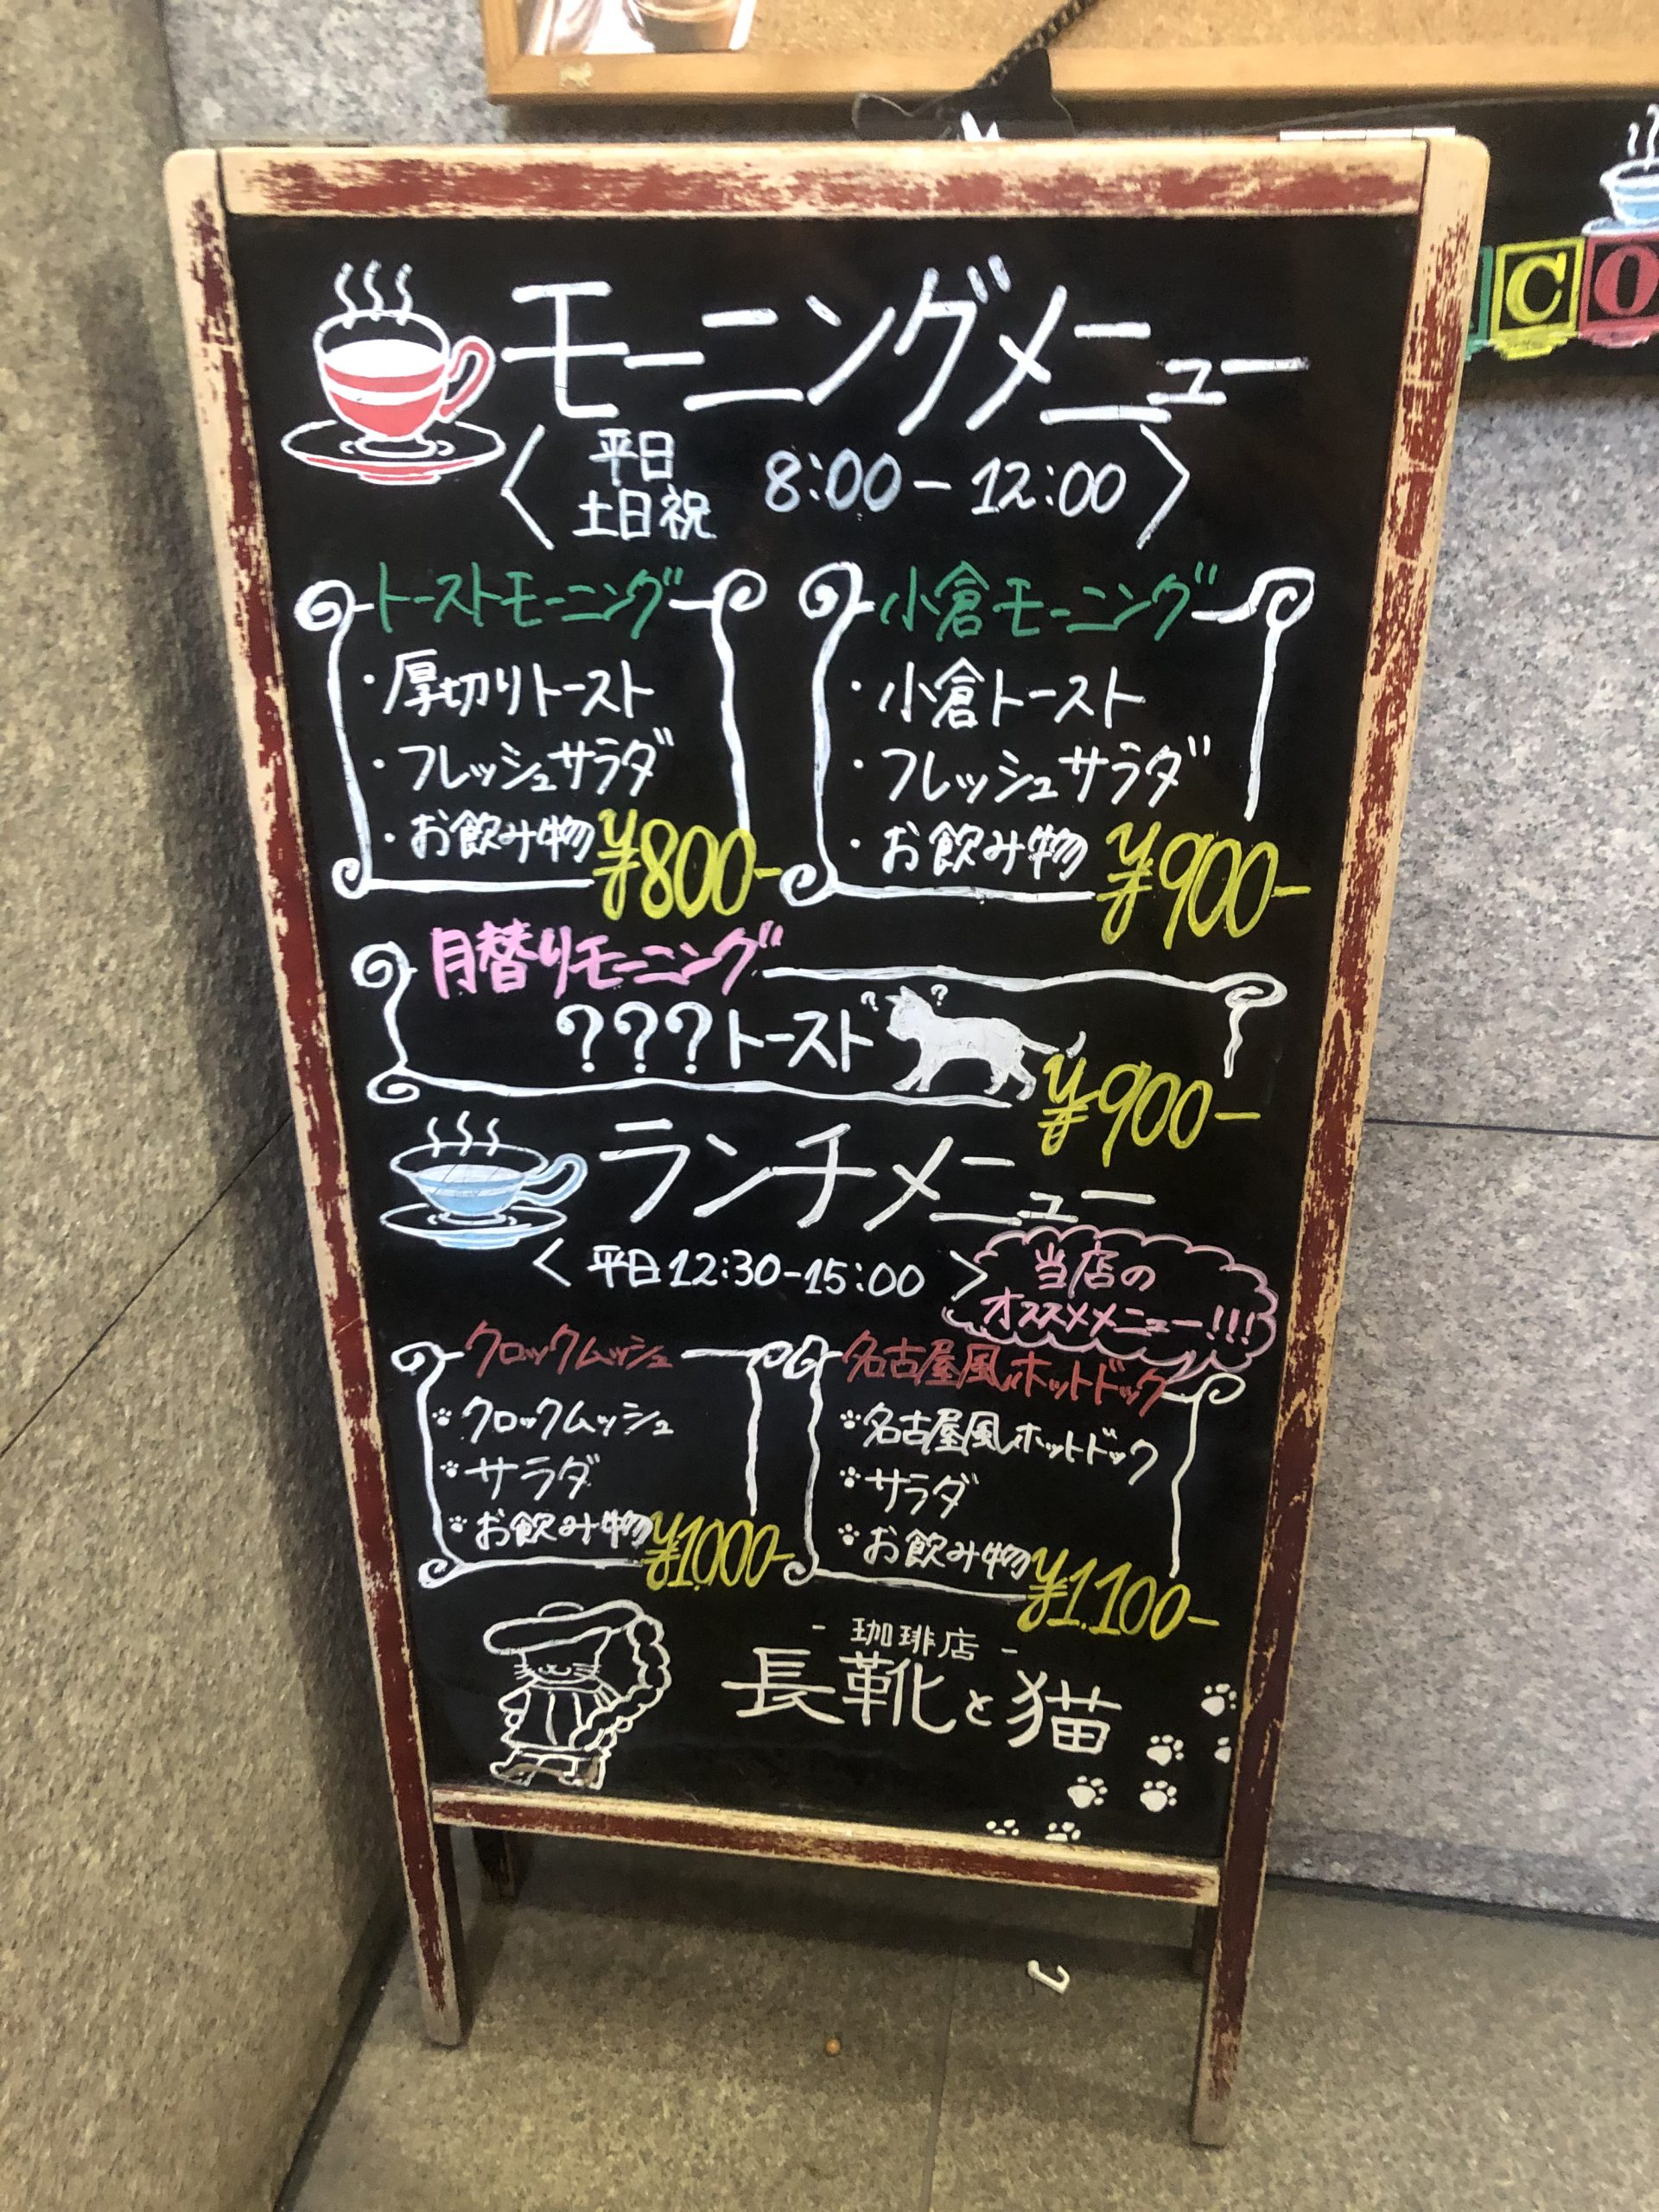 モーニングメニュー
平日
土日祝
8:00-12:00
トーストモーニング
・厚切りトースト
・フレッシュサラダ
・お飲み物
¥800-
小倉モーニング
・小倉トースト
・フレッシュサラダ
・お飲み物
¥900-
月替りモーニング
???トースト
? ?
¥900-
ランチメニュー
〈平日12:30-15:00〉
当店の
オススメメニュー!!!
クロックムッシュ
クロックムッシュ
サラダ
お飲み物
¥1,000-
名古屋風ホットドック
名古屋風ホットドック
サラダ
お飲み物
¥1,100-
- 珈琲店 -
長靴と猫
CO